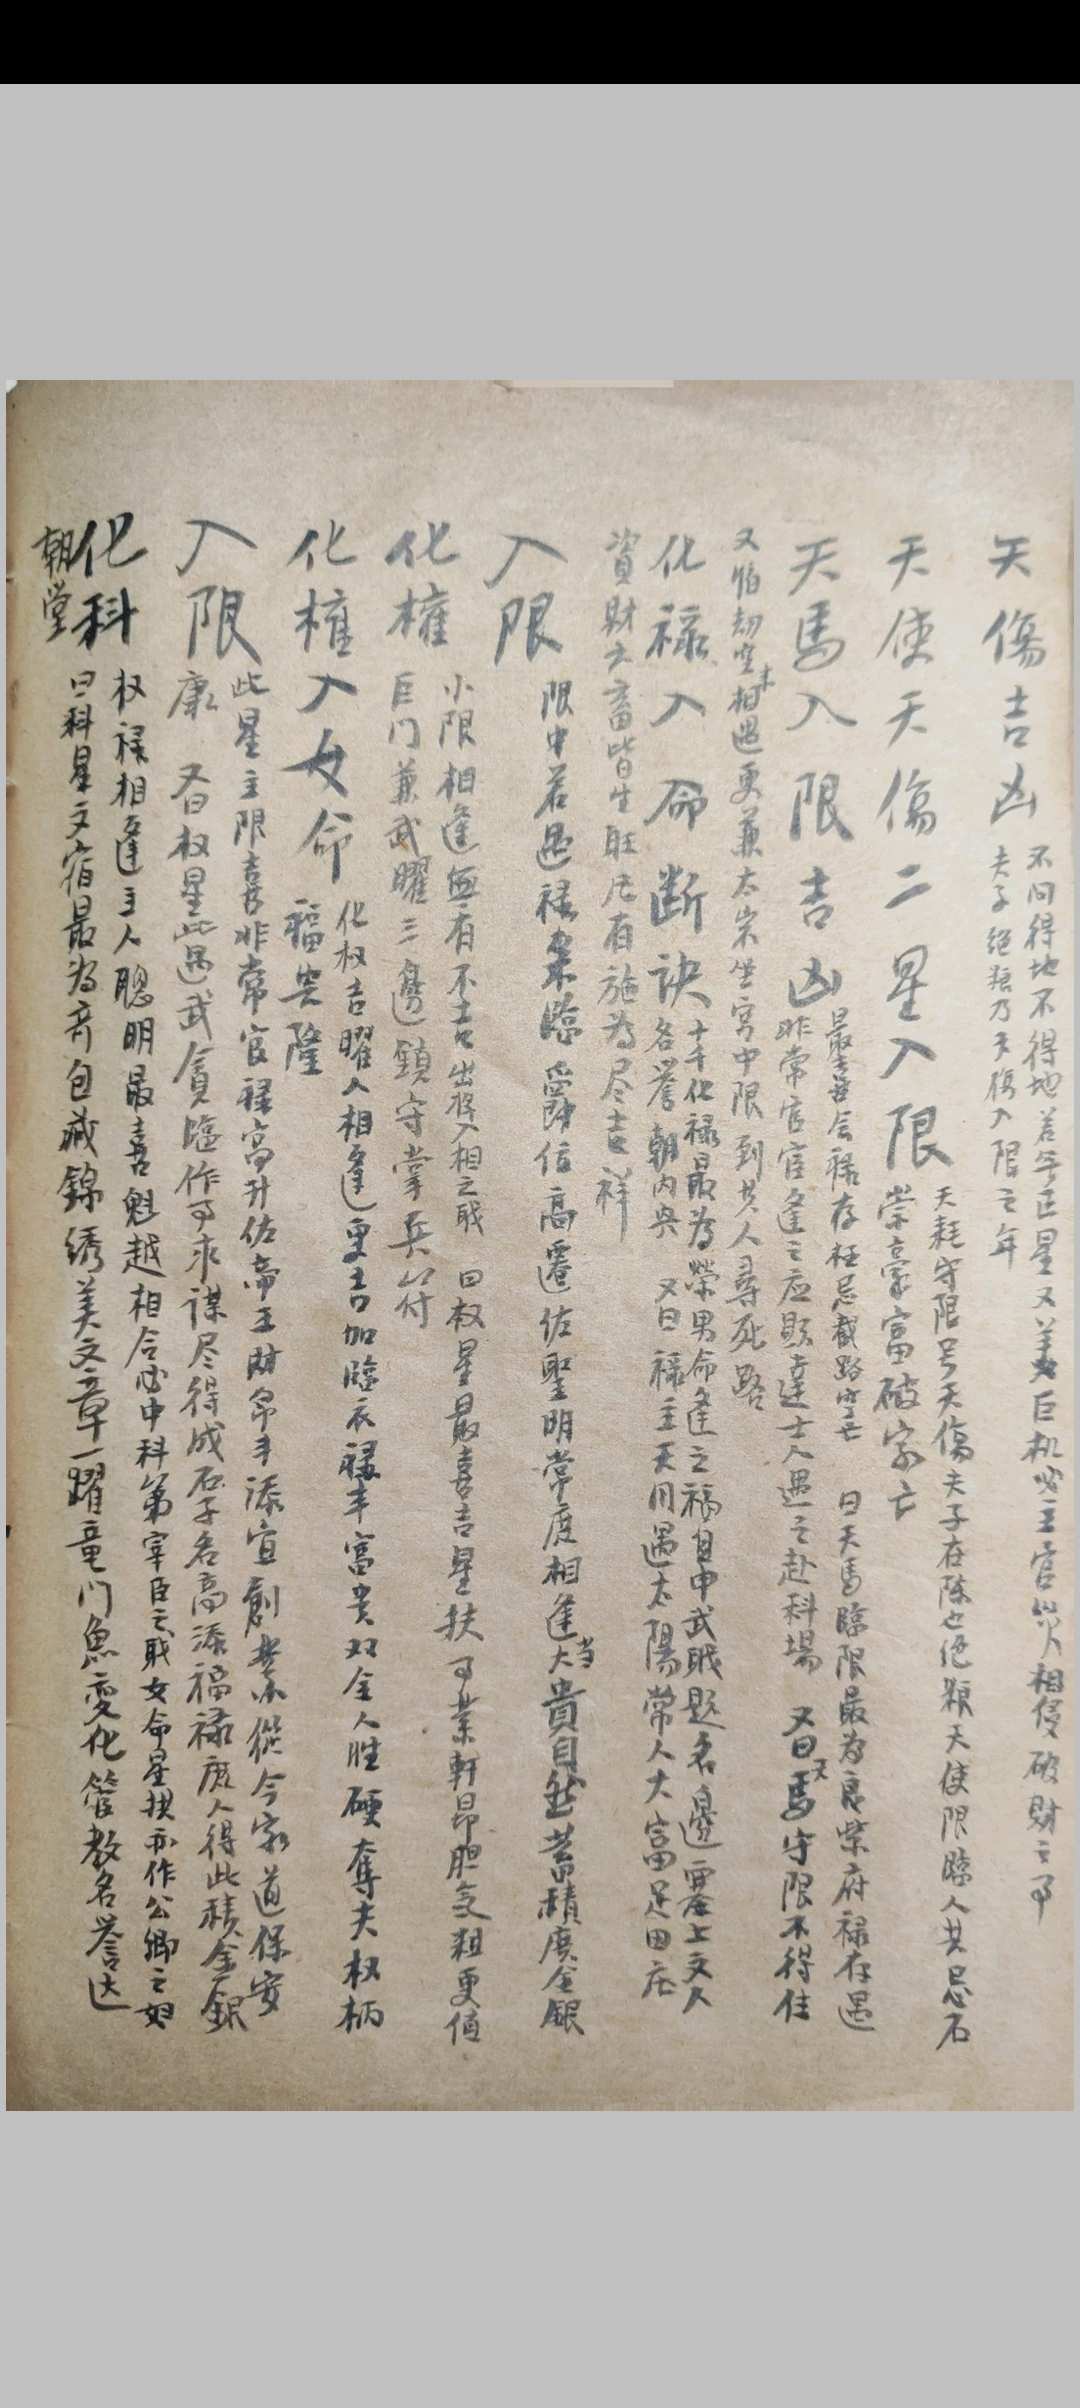 天傷吉凶
不问得地不得地若無正星又美巨机必主官災人相侵破財之事
夫子绝粮乃天傷入限之年
天使天傷二星入限
天耗守限号天傷夫子在陈也绝粮天使限臨人共忌石
崇豪富破家亡
天馬入限吉凶
最喜会禄存极忌截路空亡 曰天馬臨限最为良紫府禄存遇
非常官宦逢之应顯達士人遇之赴科場 又曰馬守限不得住
又怕劫空来相遇更兼太岁坐宫中限到其人尋死路
化禄入命断诀
十干化禄最为榮男命逢之福自申武职题名邊塞上文人
名譽朝内吳 又曰禄主天同遇太陽常人大富足田庄
資財六畜皆生旺凡有施为尽吉祥
入限
限中若遇禄来臨爵位高遷佐聖明常度相逢当大貴自然蓄積廣金銀
化權
小限相逢無有不吉出将入相之职 曰权星最喜吉星扶事業軒昂胆氣粗更值
巨门兼武曜三邊鎮守掌兵符
化權入女命
化权吉曜入相逢更吉加臨衣禄丰富贵双全人性硬奪夫权柄
福贵隆
入限
此星主限喜非常官禄高升佐帝王財帛丰添宜創業從今家道保安
康 又曰权星此遇武貪臨作事求谋尽得成石子名高添福禄庶人得此積金銀
化科
权禄相逢主人聰明最喜魁越相合必中科第宰臣之职女命星拱亦作公卿之妇
曰科星文宿最为奇包藏錦绣美文章一躍竜门魚变化管教名誉达
朝堂